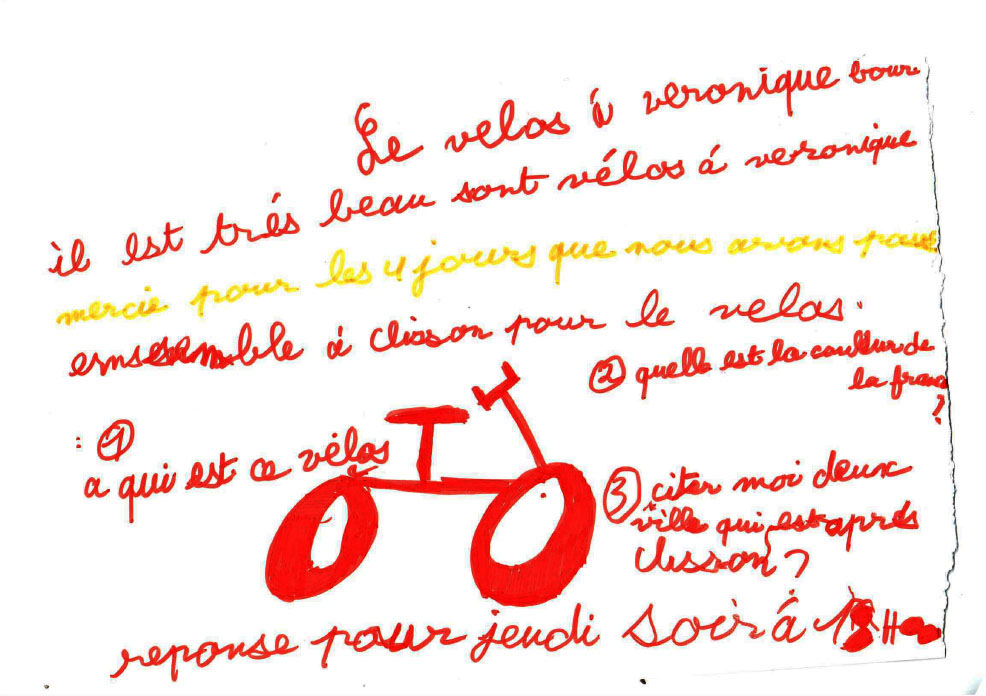 Le velos à veronique bour
il est trés beau sont vélos á veronique
mercie pour les 4 jours que nous avons pass
ensemble á clisson pour le velos.
② quelle est la couleur de
la franc
?
: ①
a qui est ce vélos
③ citer moi deux
ville qui est aprés
clisson ?
reponse pour jeudi soir á 18H